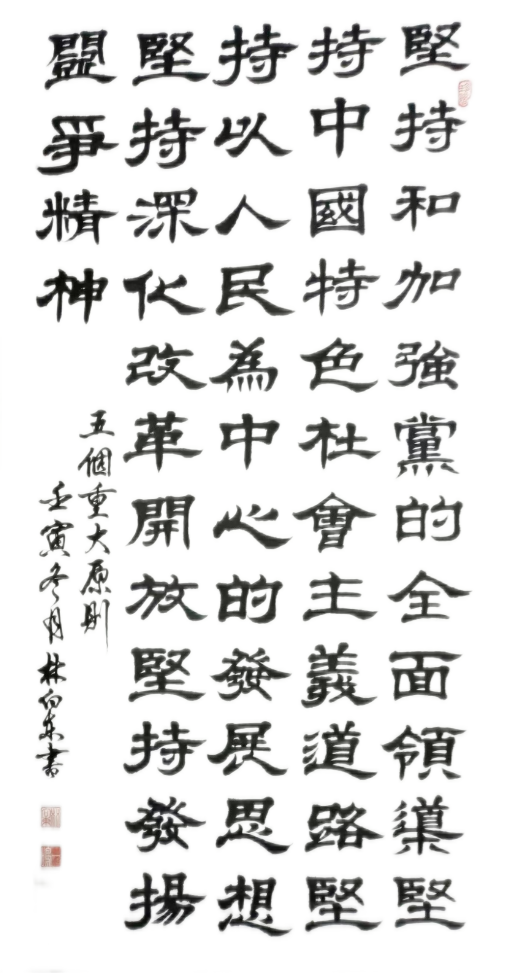 堅持和加強黨的全面領導堅
持中國特色社會主義道路堅
持以人民為中心的發展思想
堅持深化改革開放堅持發揚
鬭爭精神
五個重大原則
壬寅冬月林向东書